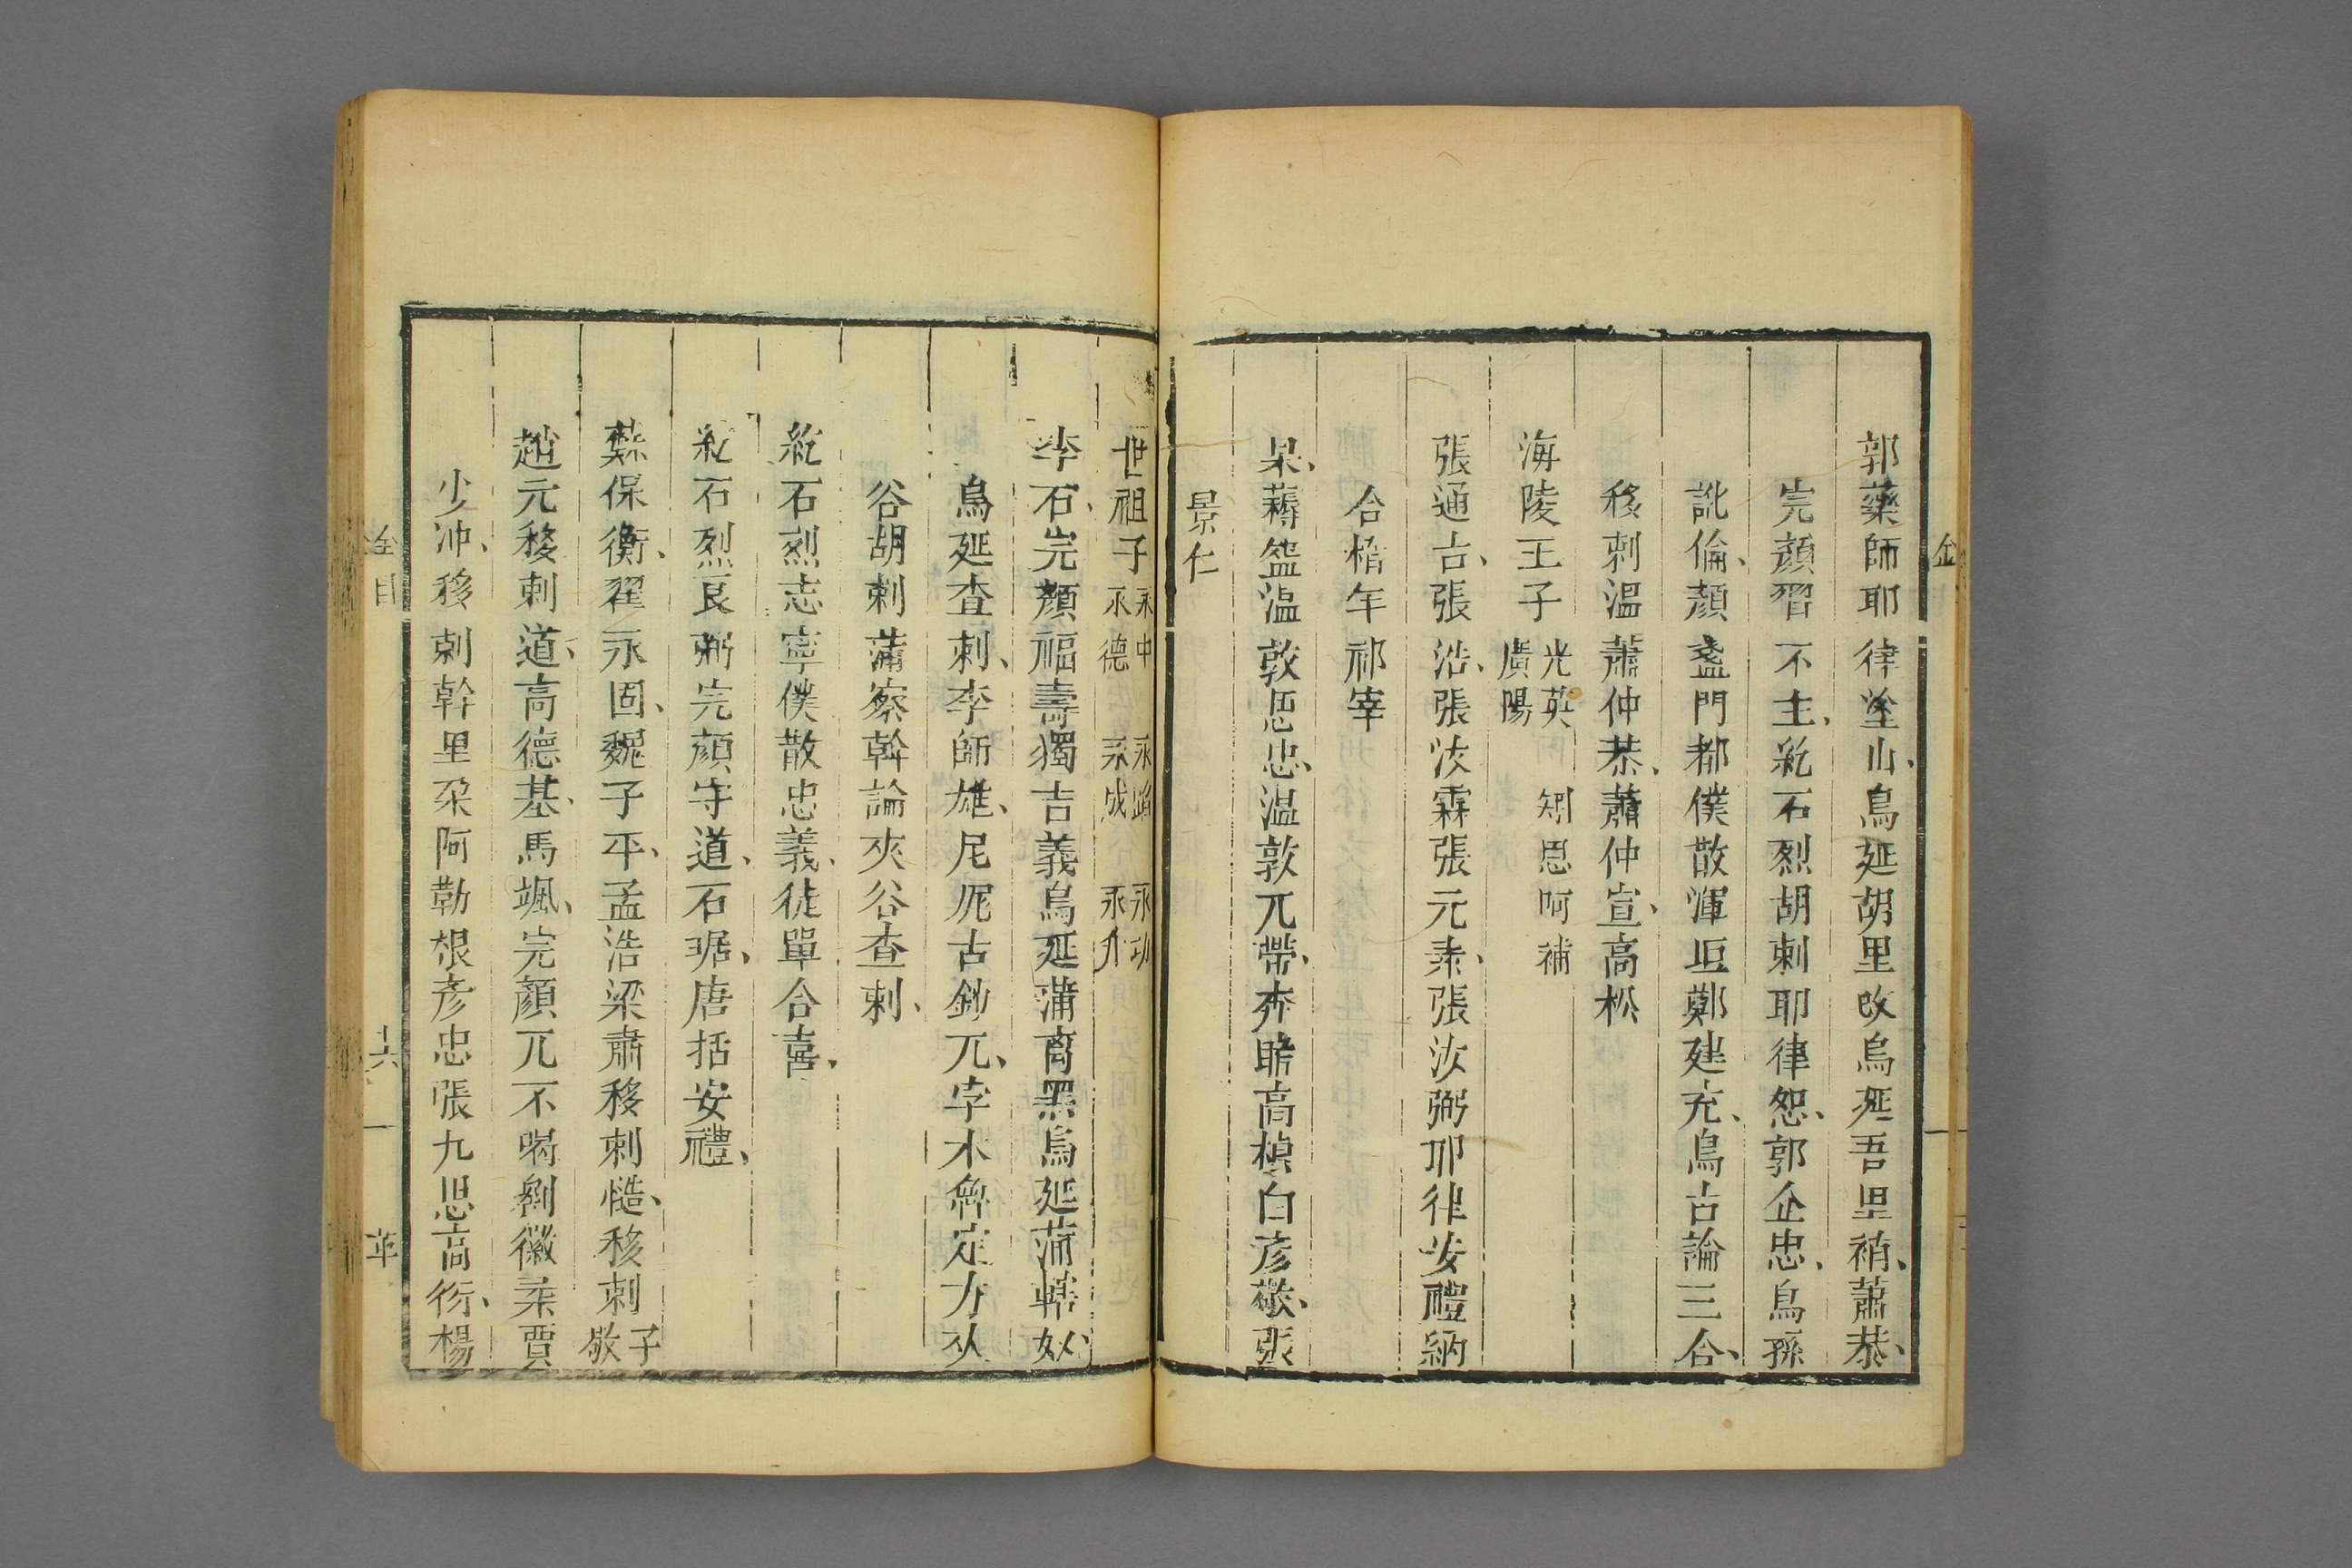 郭藥師耶律塗山烏延胡里改烏延吾里補蕭恭
完顏習不主紇石烈胡剌耶律恕郭企忠烏孫
訛倫顏盞門都僕散渾坦鄭建充烏古論三合
移剌溫蕭仲恭蕭仲宣高松
海陵王子光英 矧思阿補 廣陽
張通古張浩張汝霖張玄素張汝弼耶律安禮納
合椿年祁宰
杲耨盌溫敦思忠溫敦兀帶奔睹高楨白彥敬張
景仁
世祖子永中 永蹈 永功 永德 永成 永升
李石完顏福壽獨吉義烏延蒲离黑烏延蒲轄奴
烏延查剌李師雄尼厖古鈔兀孛术魯定方夾
谷胡剌蒲察斡論夾谷查剌
紇石烈志寧僕散忠義徒單合喜
紇石烈良弼完顏守道石琚唐括安禮
蘇保衡翟永固魏子平孟浩梁肅移剌慥移剌子敬
趙元移剌道高德基馬諷完顏兀不喝劉徽柔賈
少冲移剌斡里朵阿勒根彥忠張九思高衎楊
金目 十六